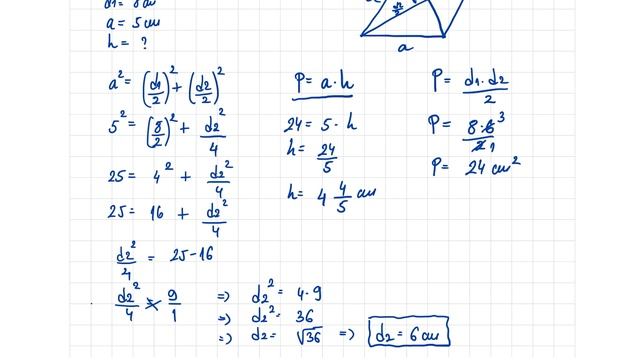 d1 = 8 cm
a = 5 cm
h = ?
a
a² = (d1/2)² + (d2/2)²
5² = (8/2)² + d2²/4
25 = 4² + d2²/4
25 = 16 + d2²/4
d2²/4 = 25-16
d2²/4 = 9/1 => d2² = 4·9
=> d2² = 36
=> d2 = √36 => d2 = 6 cm
P = a·h
24 = 5·h
h = 24/5
h = 4 4/5 cm
P = d1·d2/2
P = 8·6 3/2 1
P = 24 cm²